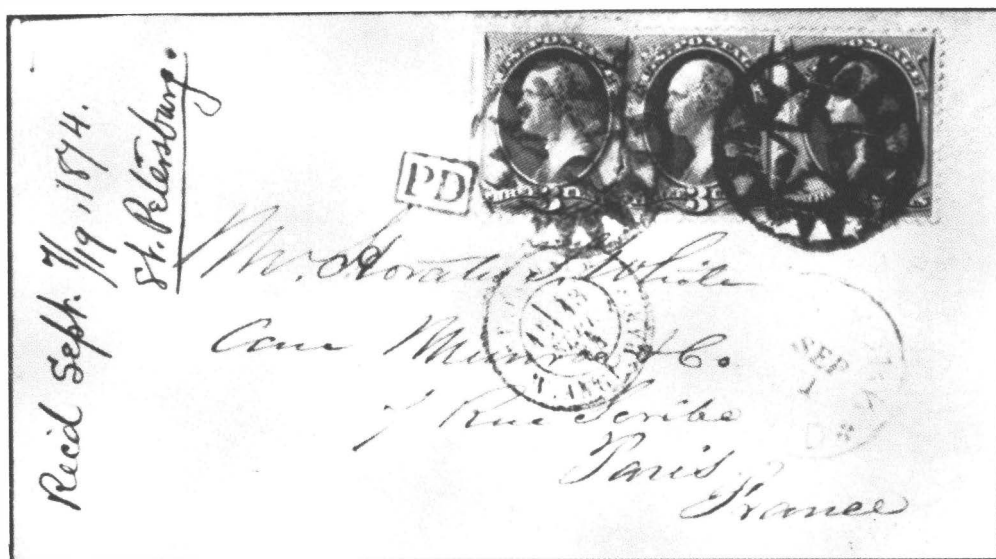 Rec'd Sept. 7/19, 1874.
St. Petersburg.
U.S. POSTAGE
3
PD
Mr. Horatio S. White
Care Munroe & Co.
7 Rue Scribe
Paris
France
SEP
1